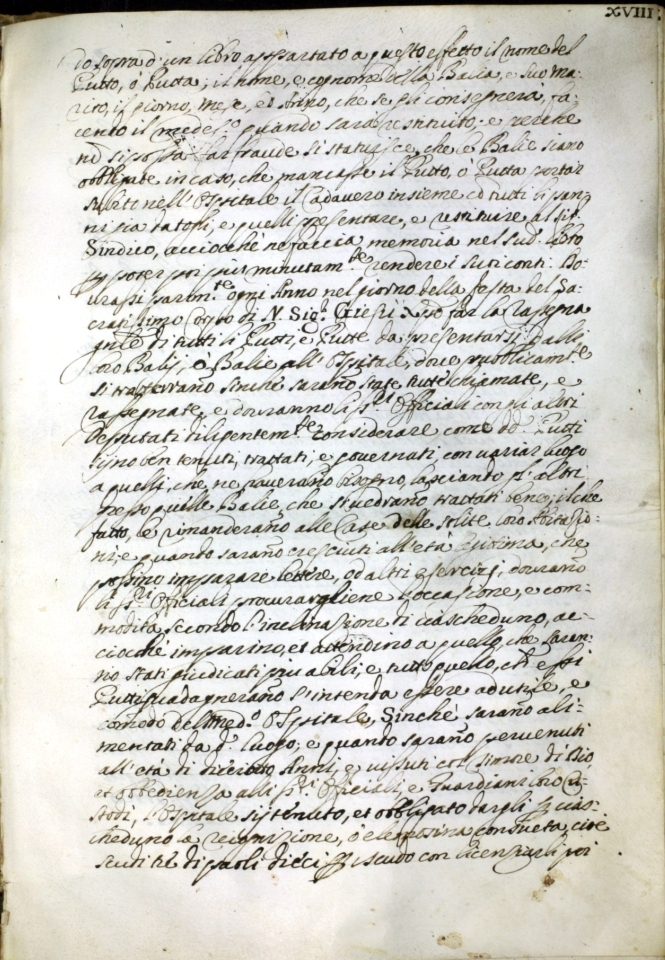 XVIII
do sopra d'un libro appartato a questo effetto il nome del
Putto, ò Putta; il nome, e cognome della Balia, e suo ma-
rito, il giorno, mese, et Anno, che se gli consegnerà, fa-
cento il medes.o quando sarà restituito; e perche
nõ si possa far fraude si statuisce, che le Balie siano
obbligate in caso, che mancasse il Putto, ò Putta portar
subito nell'Ospitale il Cadavero insieme cõ tutti li pan-
ni già datogli, e quelli presentare, e restituire al sig.r
Sindico, acciochè ne faccia memoria nel sud.o libro
per poter poi più minutam.te rendere i suoi conti. Do-
urassi parim.te ogni Anno nel giorno della festa del Sa-
cratissimo Corpo di N. Sig.r Giesù Xpõ far la rassegna
gñle di tutti li Putti, e Putte da presentarsi dalli
loro Balij, ò Balie all'Ospitale, dove pubblicam.te
si tratterrano sinchè sarano state tutte chiamate, e
rassegnate, e douranno li ss.ri Officiali con gli altri
Deputati diligentem.te considerare come dd. Putti
sijno ben tenuti, trattati, e governati, con variar luogo
a quelli, che ne haverano bisogno, lasciando gl'altri
presso quelle Balie, che si vedrano trattati bene, il che
fatto, le rimanderano alle Case delle solite loro
ni, e quando sarano cresciuti all'età che
possino imparare lettere, od altri esercizj, dourano
li ss.ri Officiali procurargliene l'occasione, e com-
modità secondo l'inclinazione di ciascheduno, ac-
ciochè imparino, et attendino a quello, che saran-
no stati giudicati più abili, e tutto quello, ch'essi
Putti guadagnerano s'intenda essere ad utile, e
comodo del med.o Ospitale, sinchè sarano ali-
mentati da d.o luogo; e quando sarano pervenuti
all'età di diciotto Anni, e vissuti col timore di Dio,
et obbedienza alli ss.ri Officiali, e Guardiani loro Cu-
stodi, l'Ospitale sij tenuto, et obbligato dargli per cias-
cheduno à recognizione, ò elemosina consueta, cioè
scudi trè di paoli dieci per scudo con licenziarli poi